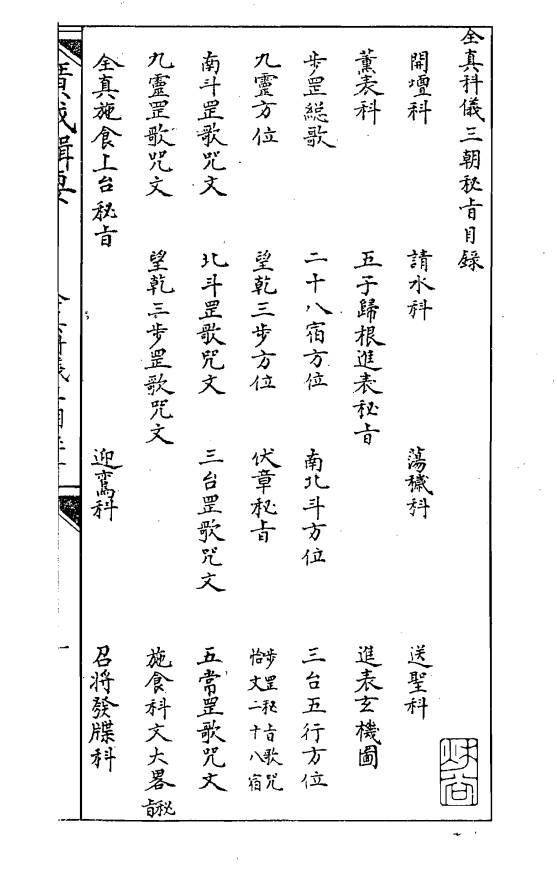 全真科儀三朝秘旨目錄
開壇科 請水科 蕩穢科 送聖科
薰表科 五子歸根進表秘旨 進表玄機圖
步罡總歌 二十八宿方位 南北斗方位 三台五行方位
九靈方位 望乾三步方位 伏章秘旨 步罡秘旨歌咒 恰文二十八宿
南斗罡歌咒文 北斗罡歌咒文 三台罡歌咒文 五常罡歌咒文
九靈罡歌咒文 望乾三步罡歌咒文 施食科文大畧秘旨
全真施食上台秘旨 迎鸞科 召將發牒科
廣成輯要
一